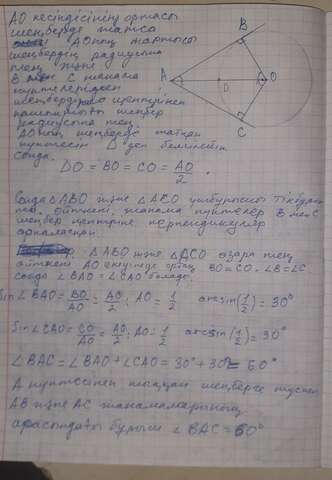 АО кесіндісінің ортасы
шеңберде жатса
АОның жартысы
шеңбердің радиусына
тең және
В және С жанама
нүктелерінен
шеңбердің центріне
радиусына тең.
АОның шеңберде жатқан
нүктесін D деп белгілейік
сонда.
DO = BO = CO = AO/2.
A B C D O
Сонда △ABO және △ACO үшбұрышы тікбұрыш
жанама нүктелер В мен С
шеңбер центріне перпендикуляр
△ABO және △ACO өзара тең
өйткені AO екеуінде ортақ BO = CO ∠B = ∠C
сонда ∠BAO = ∠CAO болады.
Sin∠BAO = BO/AO = AO/2 : AO = 1/2 arcsin(1/2) = 30°
Sin∠CAO = CO/AO = AO/2 : AO = 1/2 arcsin(1/2) = 30°
∠BAC = ∠BAO + ∠CAO = 30° + 30° = 60°
А нүктесінен шыққан шеңберге түскен
АВ және АС жанамаларының
арасындағы бұрыш ∠BAC = 60°